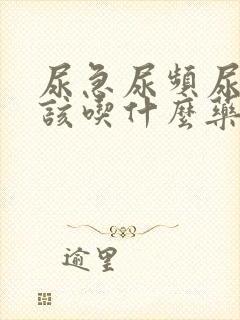 尿急尿頻尿
該喫什麼藥
逾里